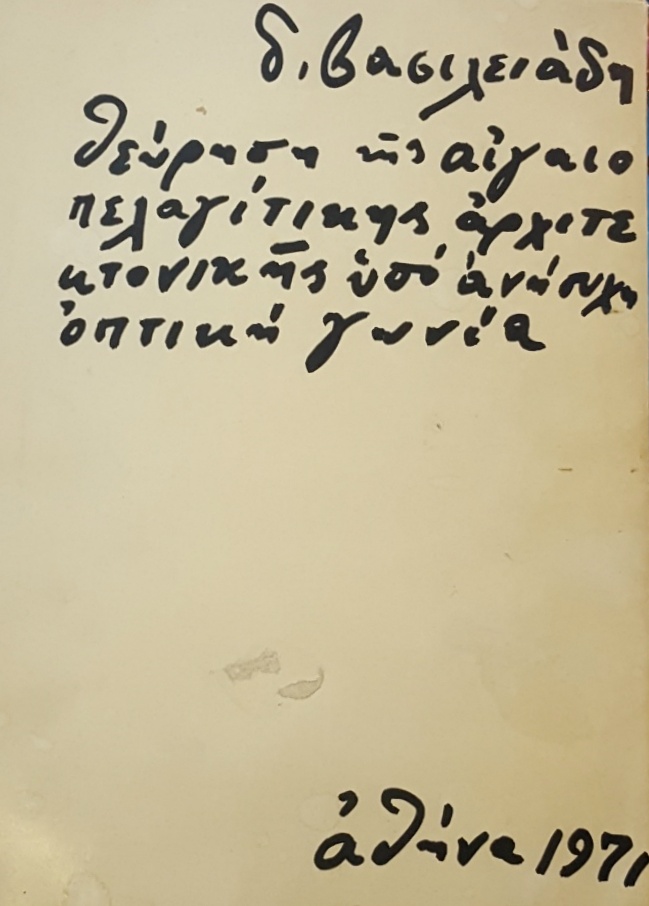 δ. βασιλειάδη
θεώρηση τῆς αἰγαιο
πελαγίτικης ἀρχιτε
κτονικῆς ὑπό ἀνήσυχη
ὀπτική γωνία
ἀθήνα 1971